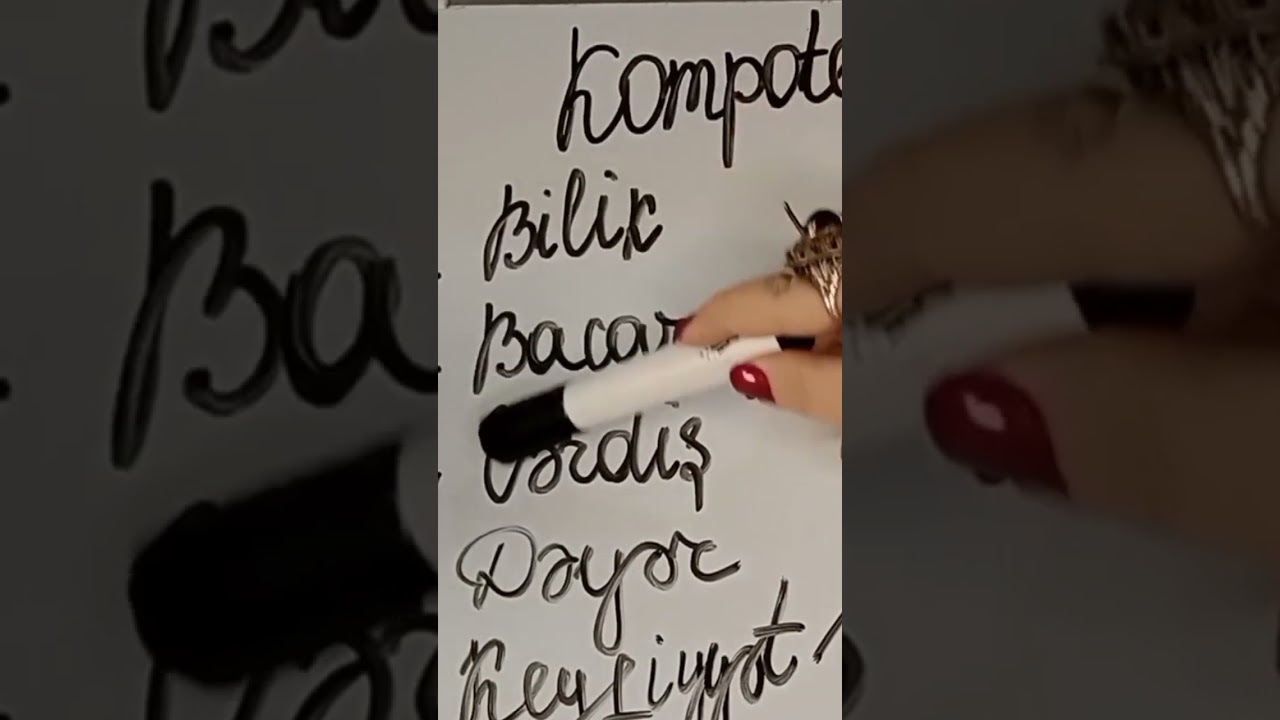 Kompote
Bilik
Bacar
Vərdiş
Dəyər
Keyfiyyət